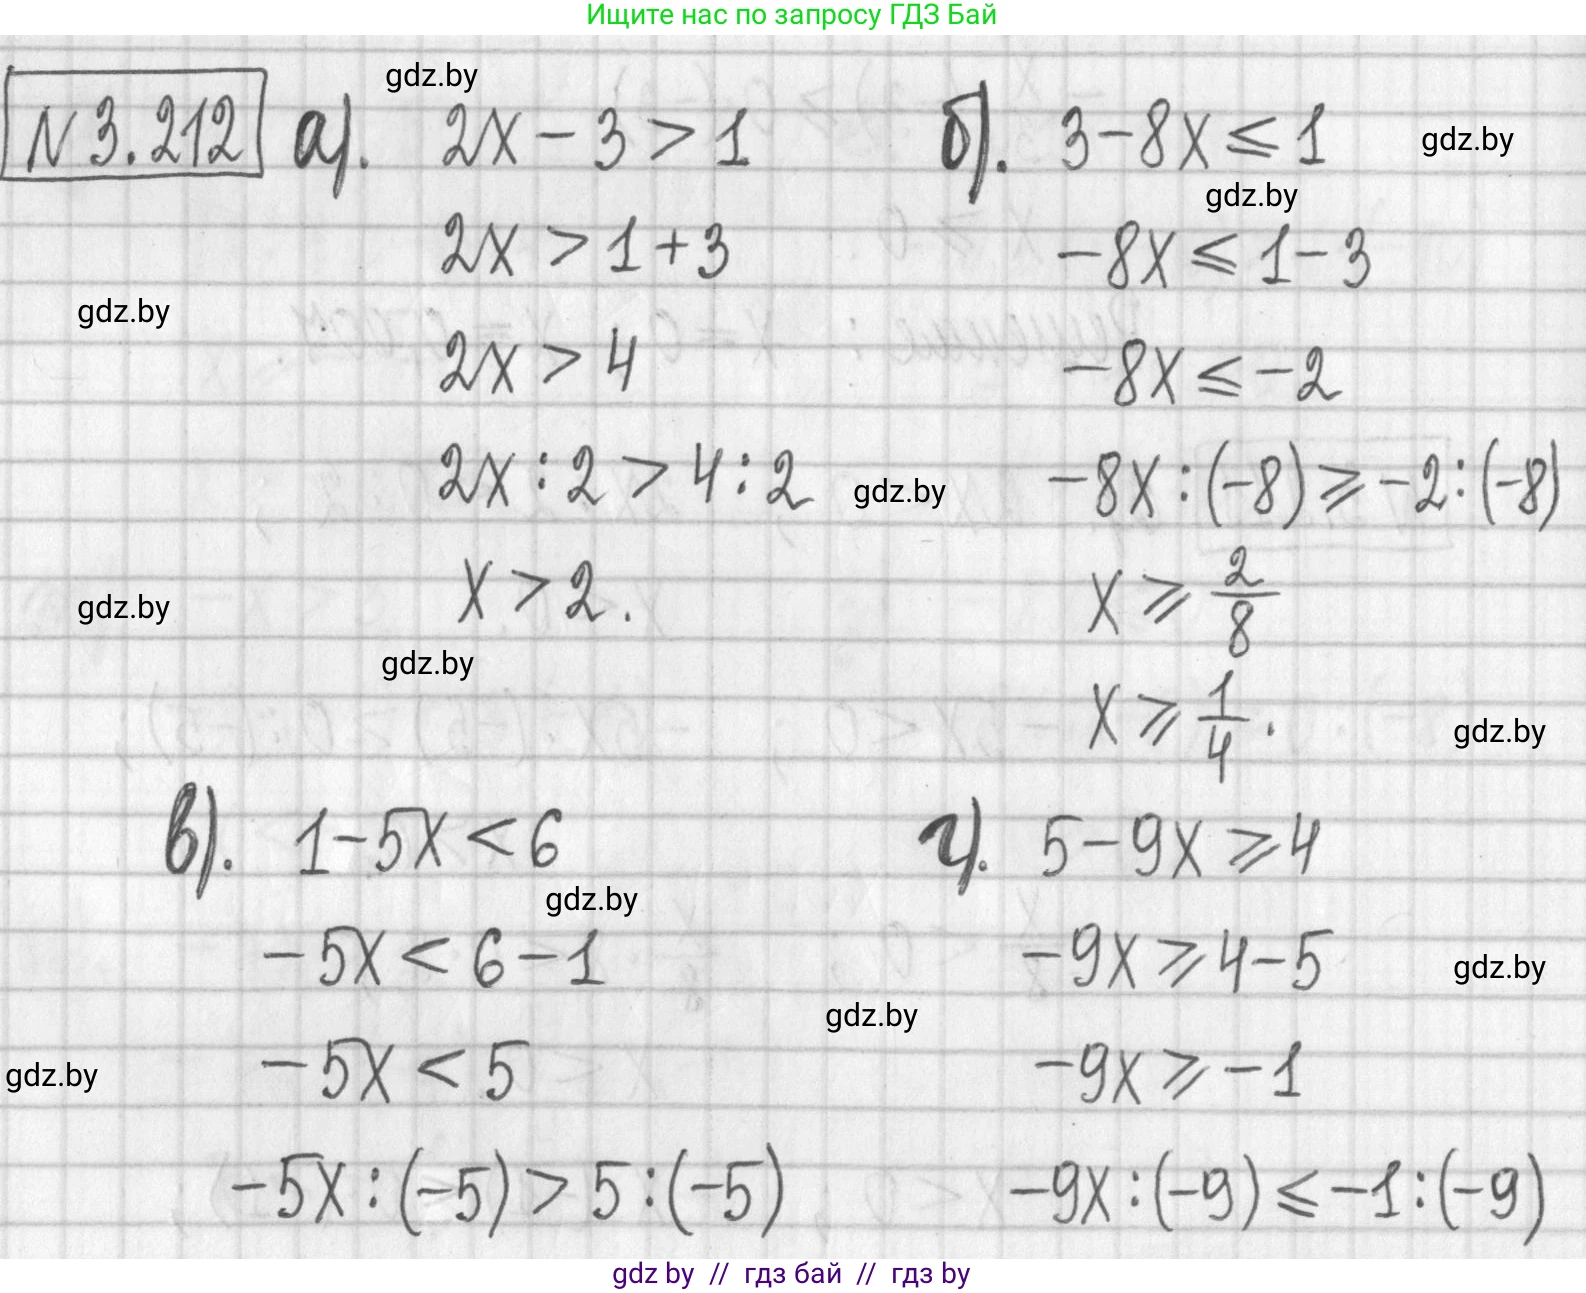 Ищите нас по запросу ГДЗ Бай
gdz.by
N 3.212 а). 2x - 3 > 1
2x > 1 + 3
gdz.by
2x > 4
2x : 2 > 4 : 2
x > 2.
gdz.by
gdz.by
б). 3 - 8x ⩽ 1
gdz.by
gdz.by
-8x ⩽ 1 - 3
-8x ⩽ -2
gdz.by
-8x : (-8) ⩾ -2 : (-8)
x ⩾ 2/8
x ⩾ 1/4.
gdz.by
в). 1 - 5x < 6
gdz.by
-5x < 6 - 1
-5x < 5
gdz.by
-5x : (-5) > 5 : (-5)
г). 5 - 9x ⩾ 4
-9x ⩾ 4 - 5
gdz.by
gdz.by
-9x ⩾ -1
-9x : (-9) ⩽ -1 : (-9)
gdz by // гдз бай // гдз by